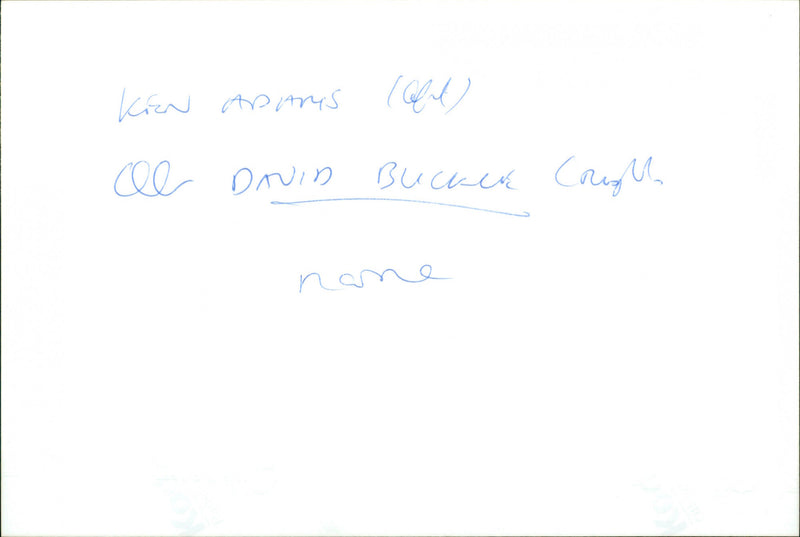 KEN ADAMS (left)
Cllr DAVID BUCKLE (right)
name